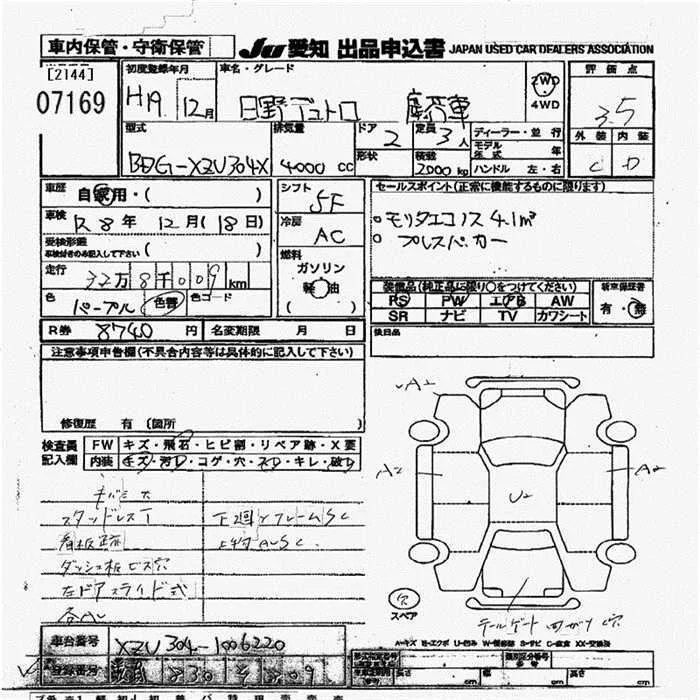 車内保管・守衛保管
JU 愛知 出品申込書 JAPAN USED CAR DEALERS ASSOCIATION
[2144]
07169
初度登録年月
H19 12月
車名・グレード
日野デュトロ 塵芥車
2WD
4WD
評価点
3.5
外装 内装
C D
型式
BDG-XZU304X
排気量
4000 cc
ドア 2
形状
定員 3人
積載 2000 kg
ディーラー・並行
モデル年式 年
ハンドル 左・右
車歴 自家用・( )
車検 R8年 12月(18日)
受検形態
走行 32万8千009km
色 パープル 色替 色コード
シフト 5F
冷房 AC
燃料
ガソリン
軽油
セールスポイント(正常に機能するものに限ります)
モリタエコノス 4.1m³
プレスパッカー
装備品(純正品に限り○をつけてください)
PS PW エアB AW
SR ナビ TV カワシート
新車保証書
有・無
後日品
R券 8740円 名変期限 月 日
注意事項申告欄(不具合内容等は具体的に記入して下さい)
修復歴 有 〔箇所 〕
検査員記入欄
FW キズ・飛石・ヒビ割・リペア跡・X要
内装 キズ・汚D・コゲ・穴・スD・キレ・破D
キバミ大
スタッドレスT
看板跡
ダッシュ板ビス穴
左ドアスライド式
下廻りフレームSC
A2
A2
A2
U2
スペア
テールゲート
車台番号 XZU304-1006220
登録番号 830